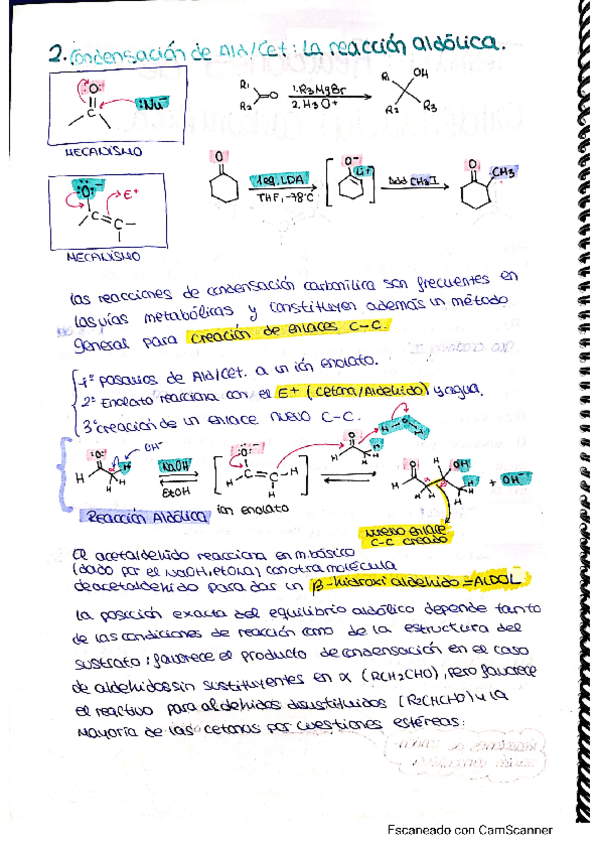 2. Condensación de Ald/Cet: La reacción aldólica.
:O:
:Nu⁻
C
MECANISMO
R₁
R₂
O
1. R₃MgBr
2. H₃O+
R₁
OH
R₂
R₃
:O:⁻
E⁺
C=C
MECANISMO
O
1 eq. LDA
THF, -78°C
O⁻
Li⁺
Add CH₃I
O
CH₃
las reacciones de condensación carbonílica son frecuentes en
las vías metabólicas y constituyen además un método
general para creación de enlaces C-C.
1º pasamos de Ald/Cet. a un ión enolato.
2º Enolato reacciona con el E+ (cetona/Aldehido) y agua.
3º creación de un enlace nuevo C-C.
:O:
OH⁻
H
H
H
NaOH
EtOH
:O:⁻
H
C=C
H
H
O
H
H
H
H
O
H
O
H
H
OH
H
H
H
H
+ OH⁻
Reacción Aldólica
ión enolato
nuevo enlace
C-C creado
El acetaldehido reacciona en m. básico
(dado por el NaOH, etOH) con otra molécula
de acetaldehido para dar un β-hidroxi aldehido = ALDOL
La posición exacta del equilibrio aldólico depende tanto
de las condiciones de reacción como de la estructura del
sustrato: favorece el producto de condensación en el caso
de aldehidos sin sustituyentes en α (RCH₂CHO), pero favorece
el reactivo para aldehidos disustituidos (R₂CHCHO) y la
mayoría de las cetonas por cuestiones estéreas:
Escaneado con CamScanner